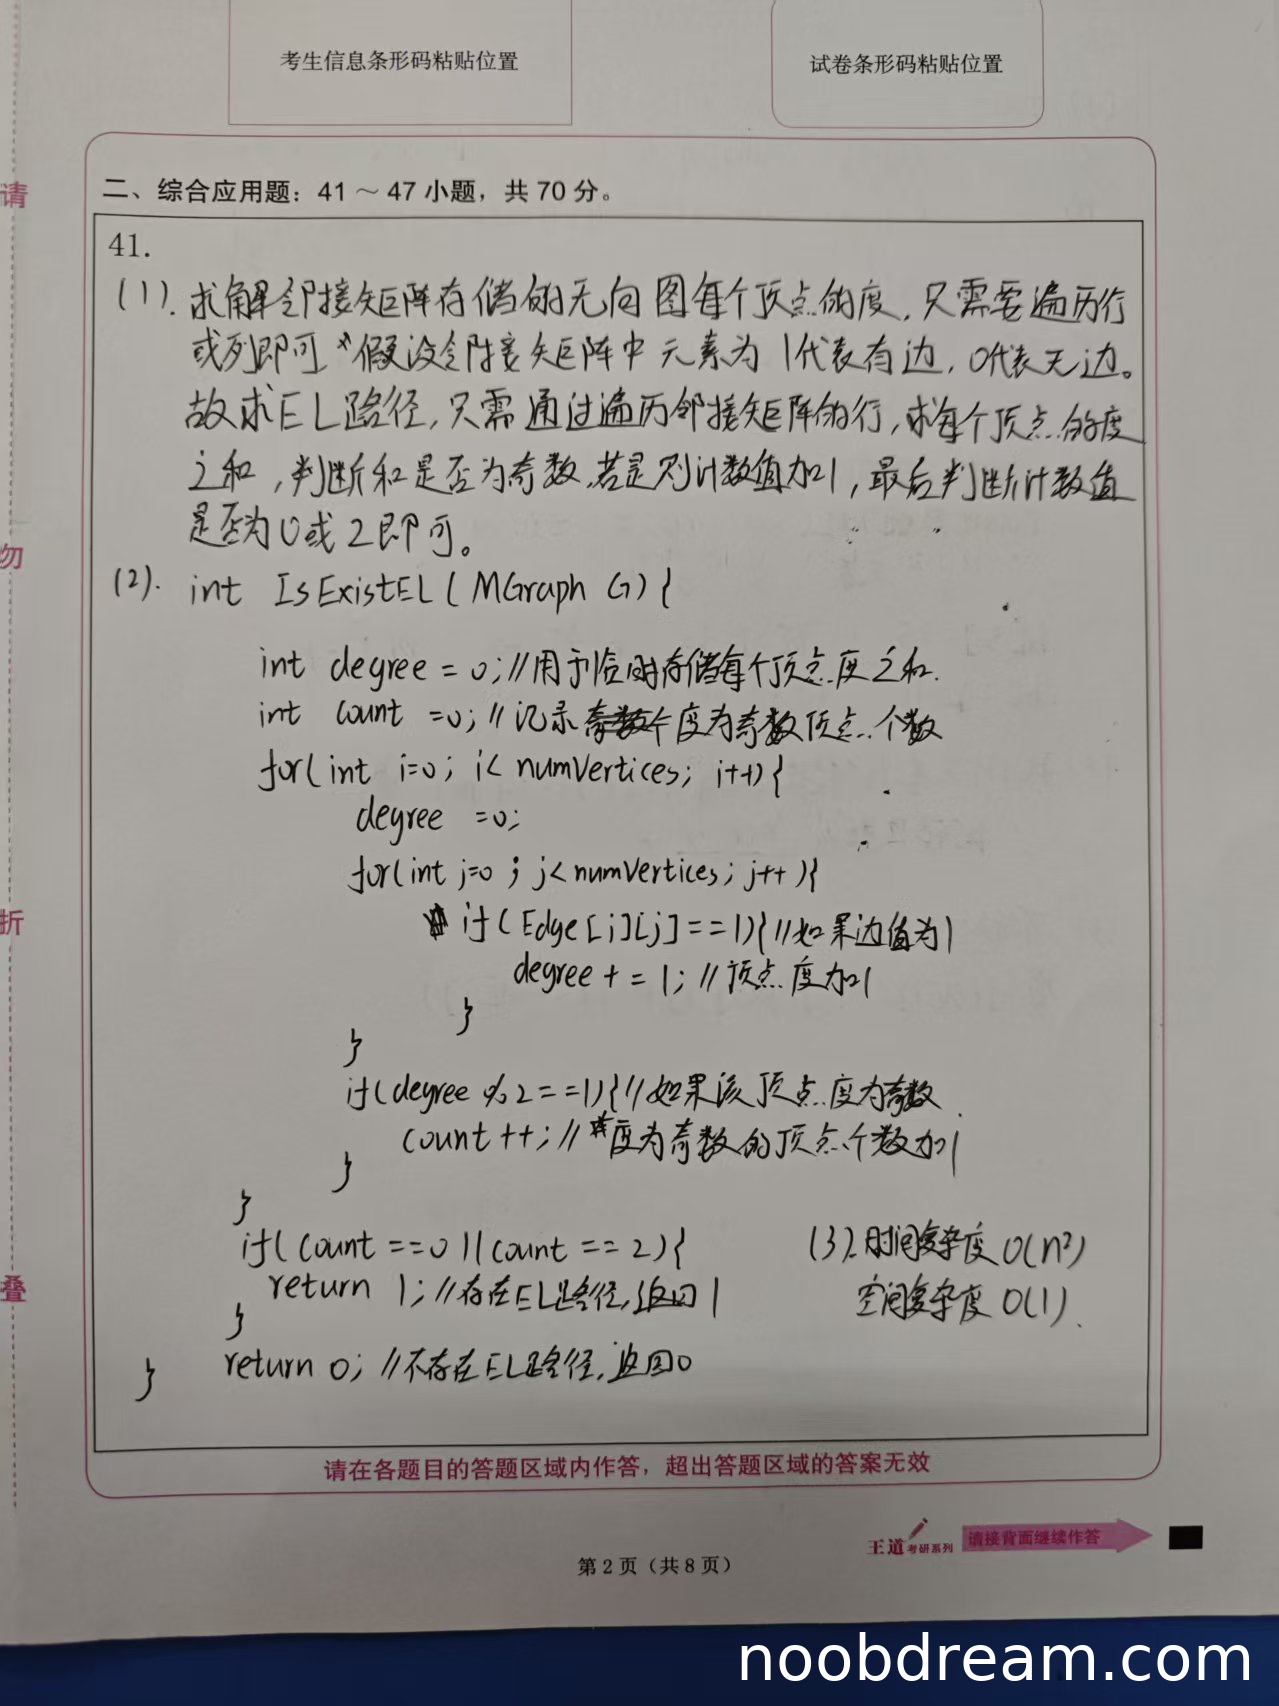 考生信息条形码粘贴位置
试卷条形码粘贴位置
请
勿
折
叠
二、综合应用题：41～47 小题，共 70 分。
41.
(1). 求解邻接矩阵存储的无向图每个顶点的度，只需要遍历行
或列即可 假设邻接矩阵中元素为1代表有边，0代表无边。
故求EL路径，只需通过遍历邻接矩阵的行，求每个顶点的度
之和，判断和是否为奇数，若是则计数值加1，最后判断计数值
是否为0或2即可。
(2). int IsExistEL(MGraph G){
int degree = 0; //用于临时存储每个顶点度之和.
int count =0; //记录度为奇数顶点个数
for(int i=0; i< numVertices; i++){
degree =0;
for(int j=0; j<numVertices; j++){
if(Edge[i][j]==1){//如果边值为1
degree += 1; //顶点度加1
}
}
if(degree%2==1){//如果该顶点度为奇数
count++; //度为奇数的顶点个数加1
}
}
if(count==0||count==2){
return 1; //存在EL路径,返回1
}
return 0; //不存在EL路径,返回0
}
(3). 时间复杂度 O(n²)
空间复杂度 O(1).
请在各题目的答题区域内作答，超出答题区域的答案无效
王道考研系列
请接背面继续作答
第 2 页（共 8 页）
noobdream.com